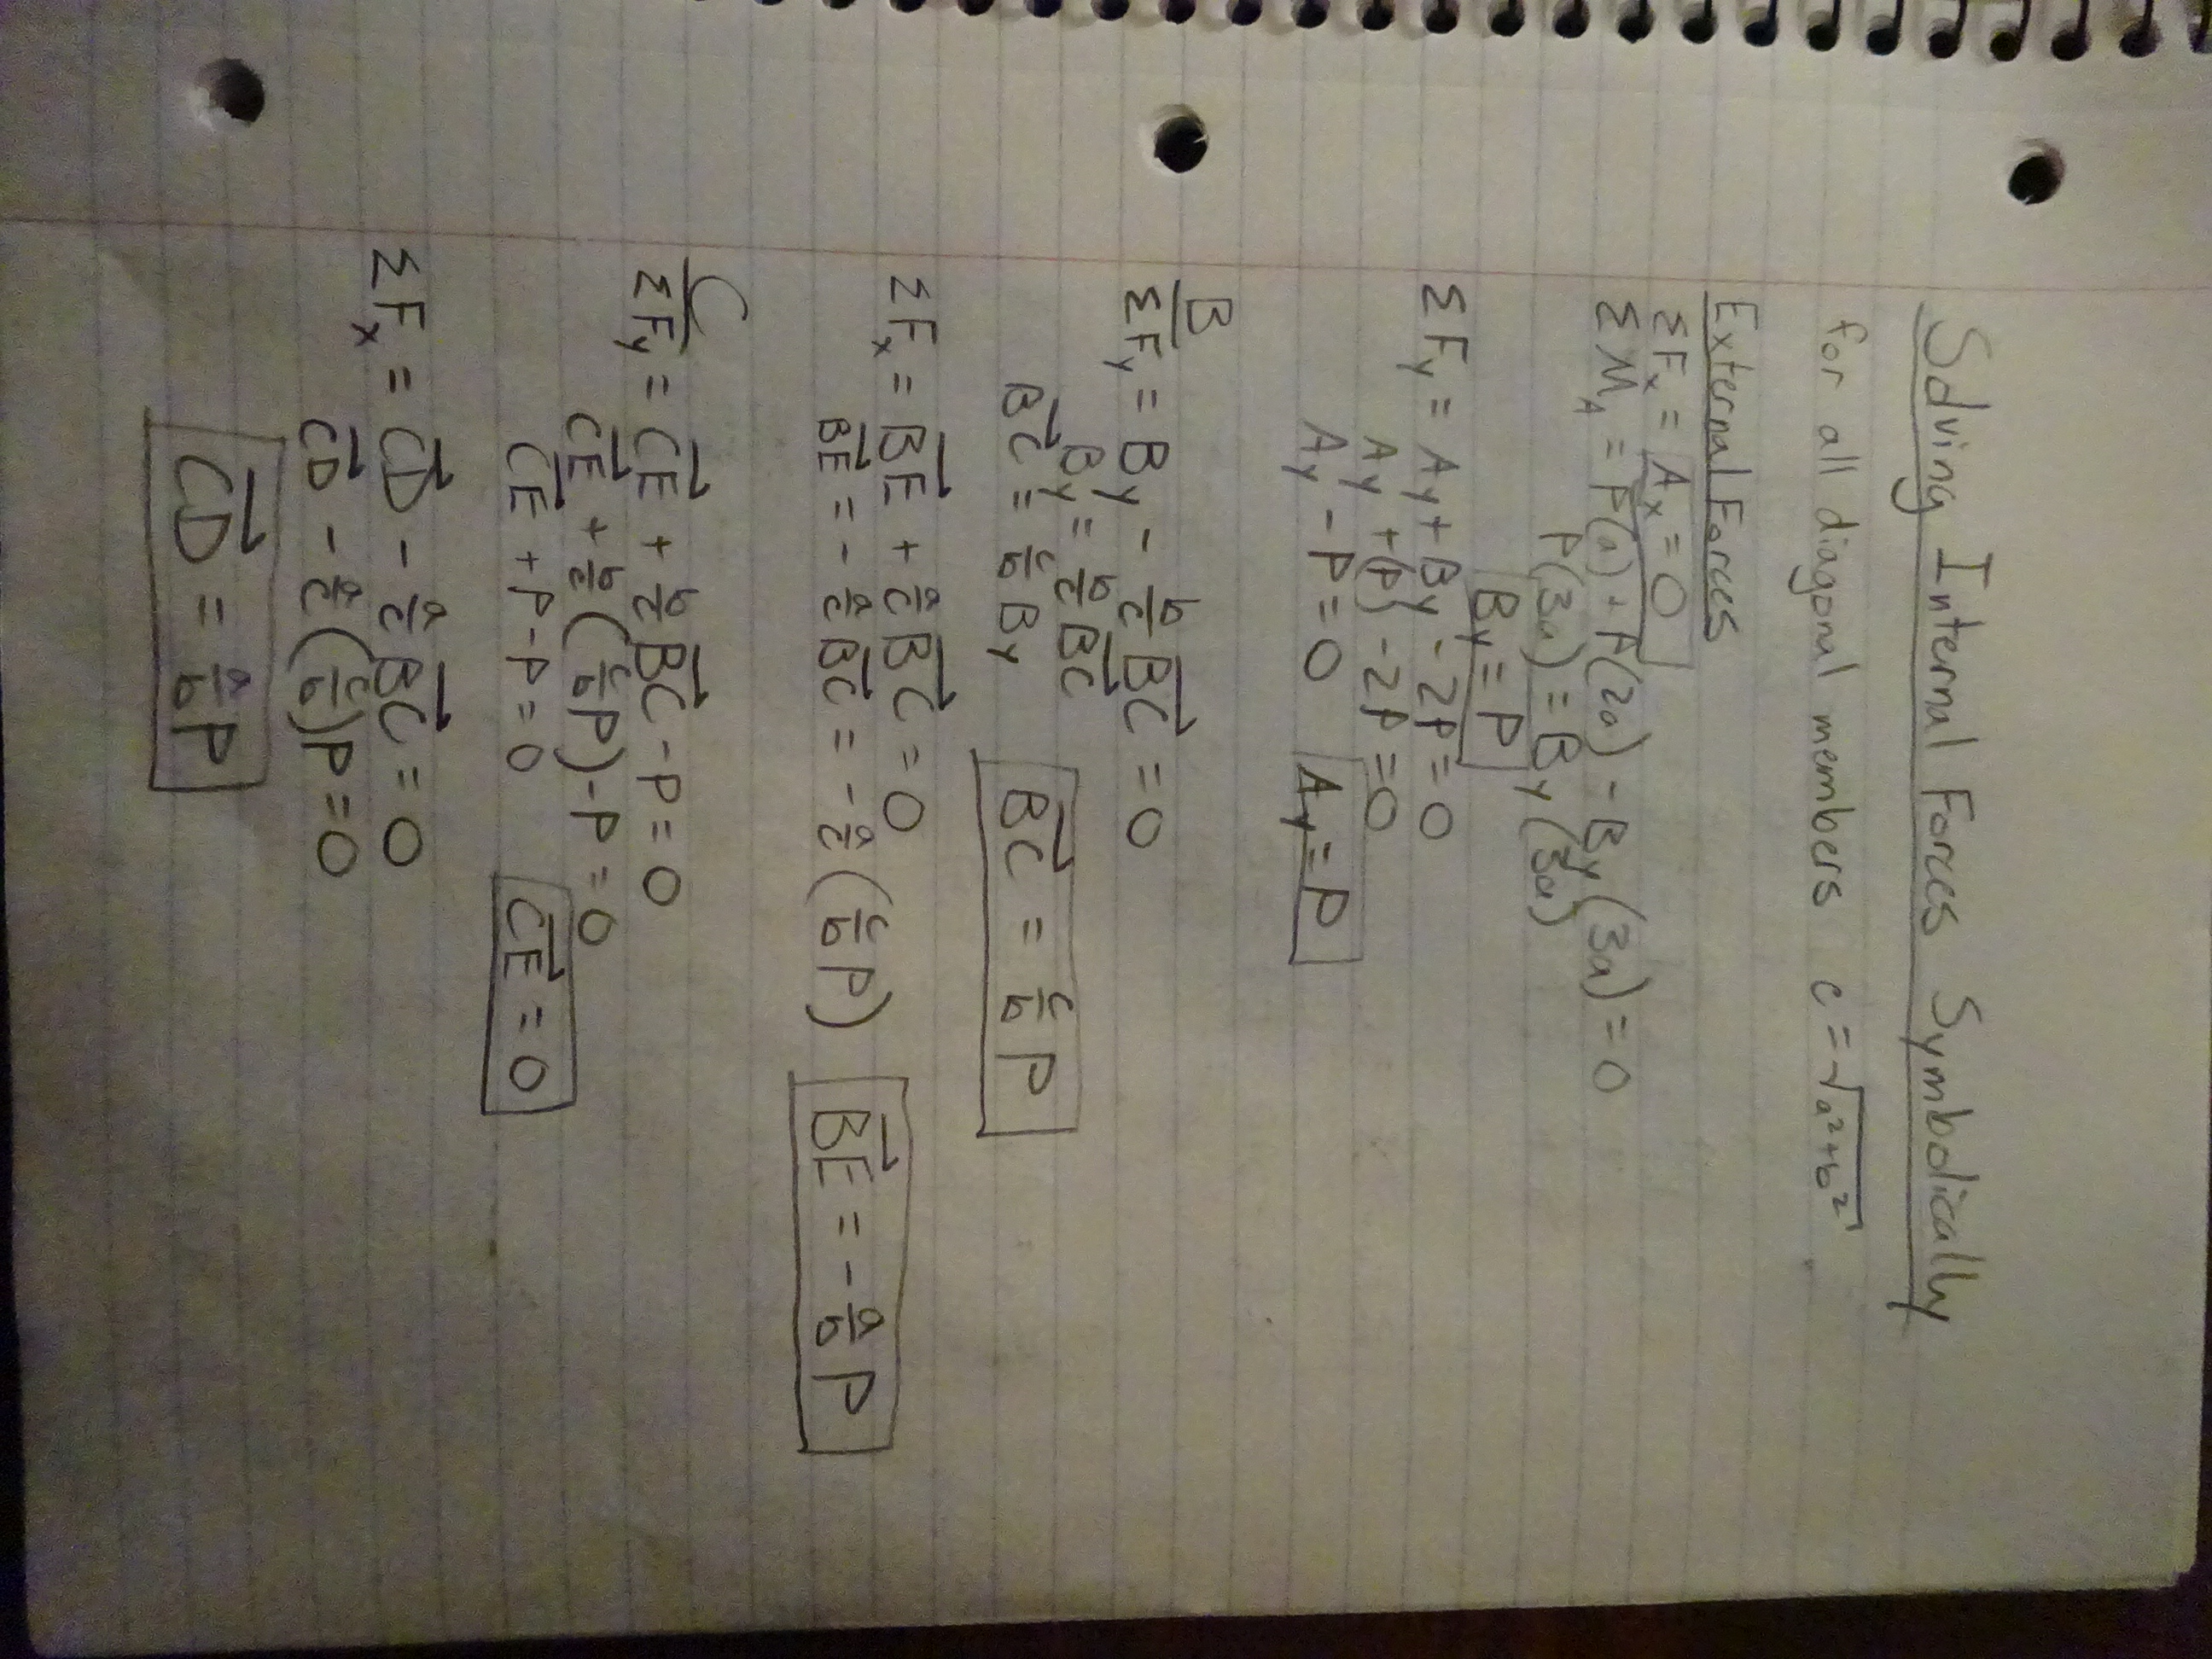 Solving Internal Forces Symbolically
for all diagonal members c = √a²+b²
External Forces
ΣFx = Ax = 0
ΣM_A = P(a) + P(2a) - By(3a) = 0
P(3a) = By(3a)
By = P
ΣFy = Ay + By - 2P = 0
Ay + (P) - 2P = 0
Ay - P = 0 Ay = P
B
ΣFy = By - b/c BC = 0
By = b/c BC
BC = c/b By BC = c/b P
ΣFx = BE + a/c BC = 0
BE = - a/c BC = - a/c (c/b P) BE = - a/b P
C
ΣFy = CE + b/c BC - P = 0
CE + b/c (c/b P) - P = 0
CE + P - P = 0 CE = 0
ΣFx = CD - a/c BC = 0
CD - a/c (c/b) P = 0
CD = a/b P